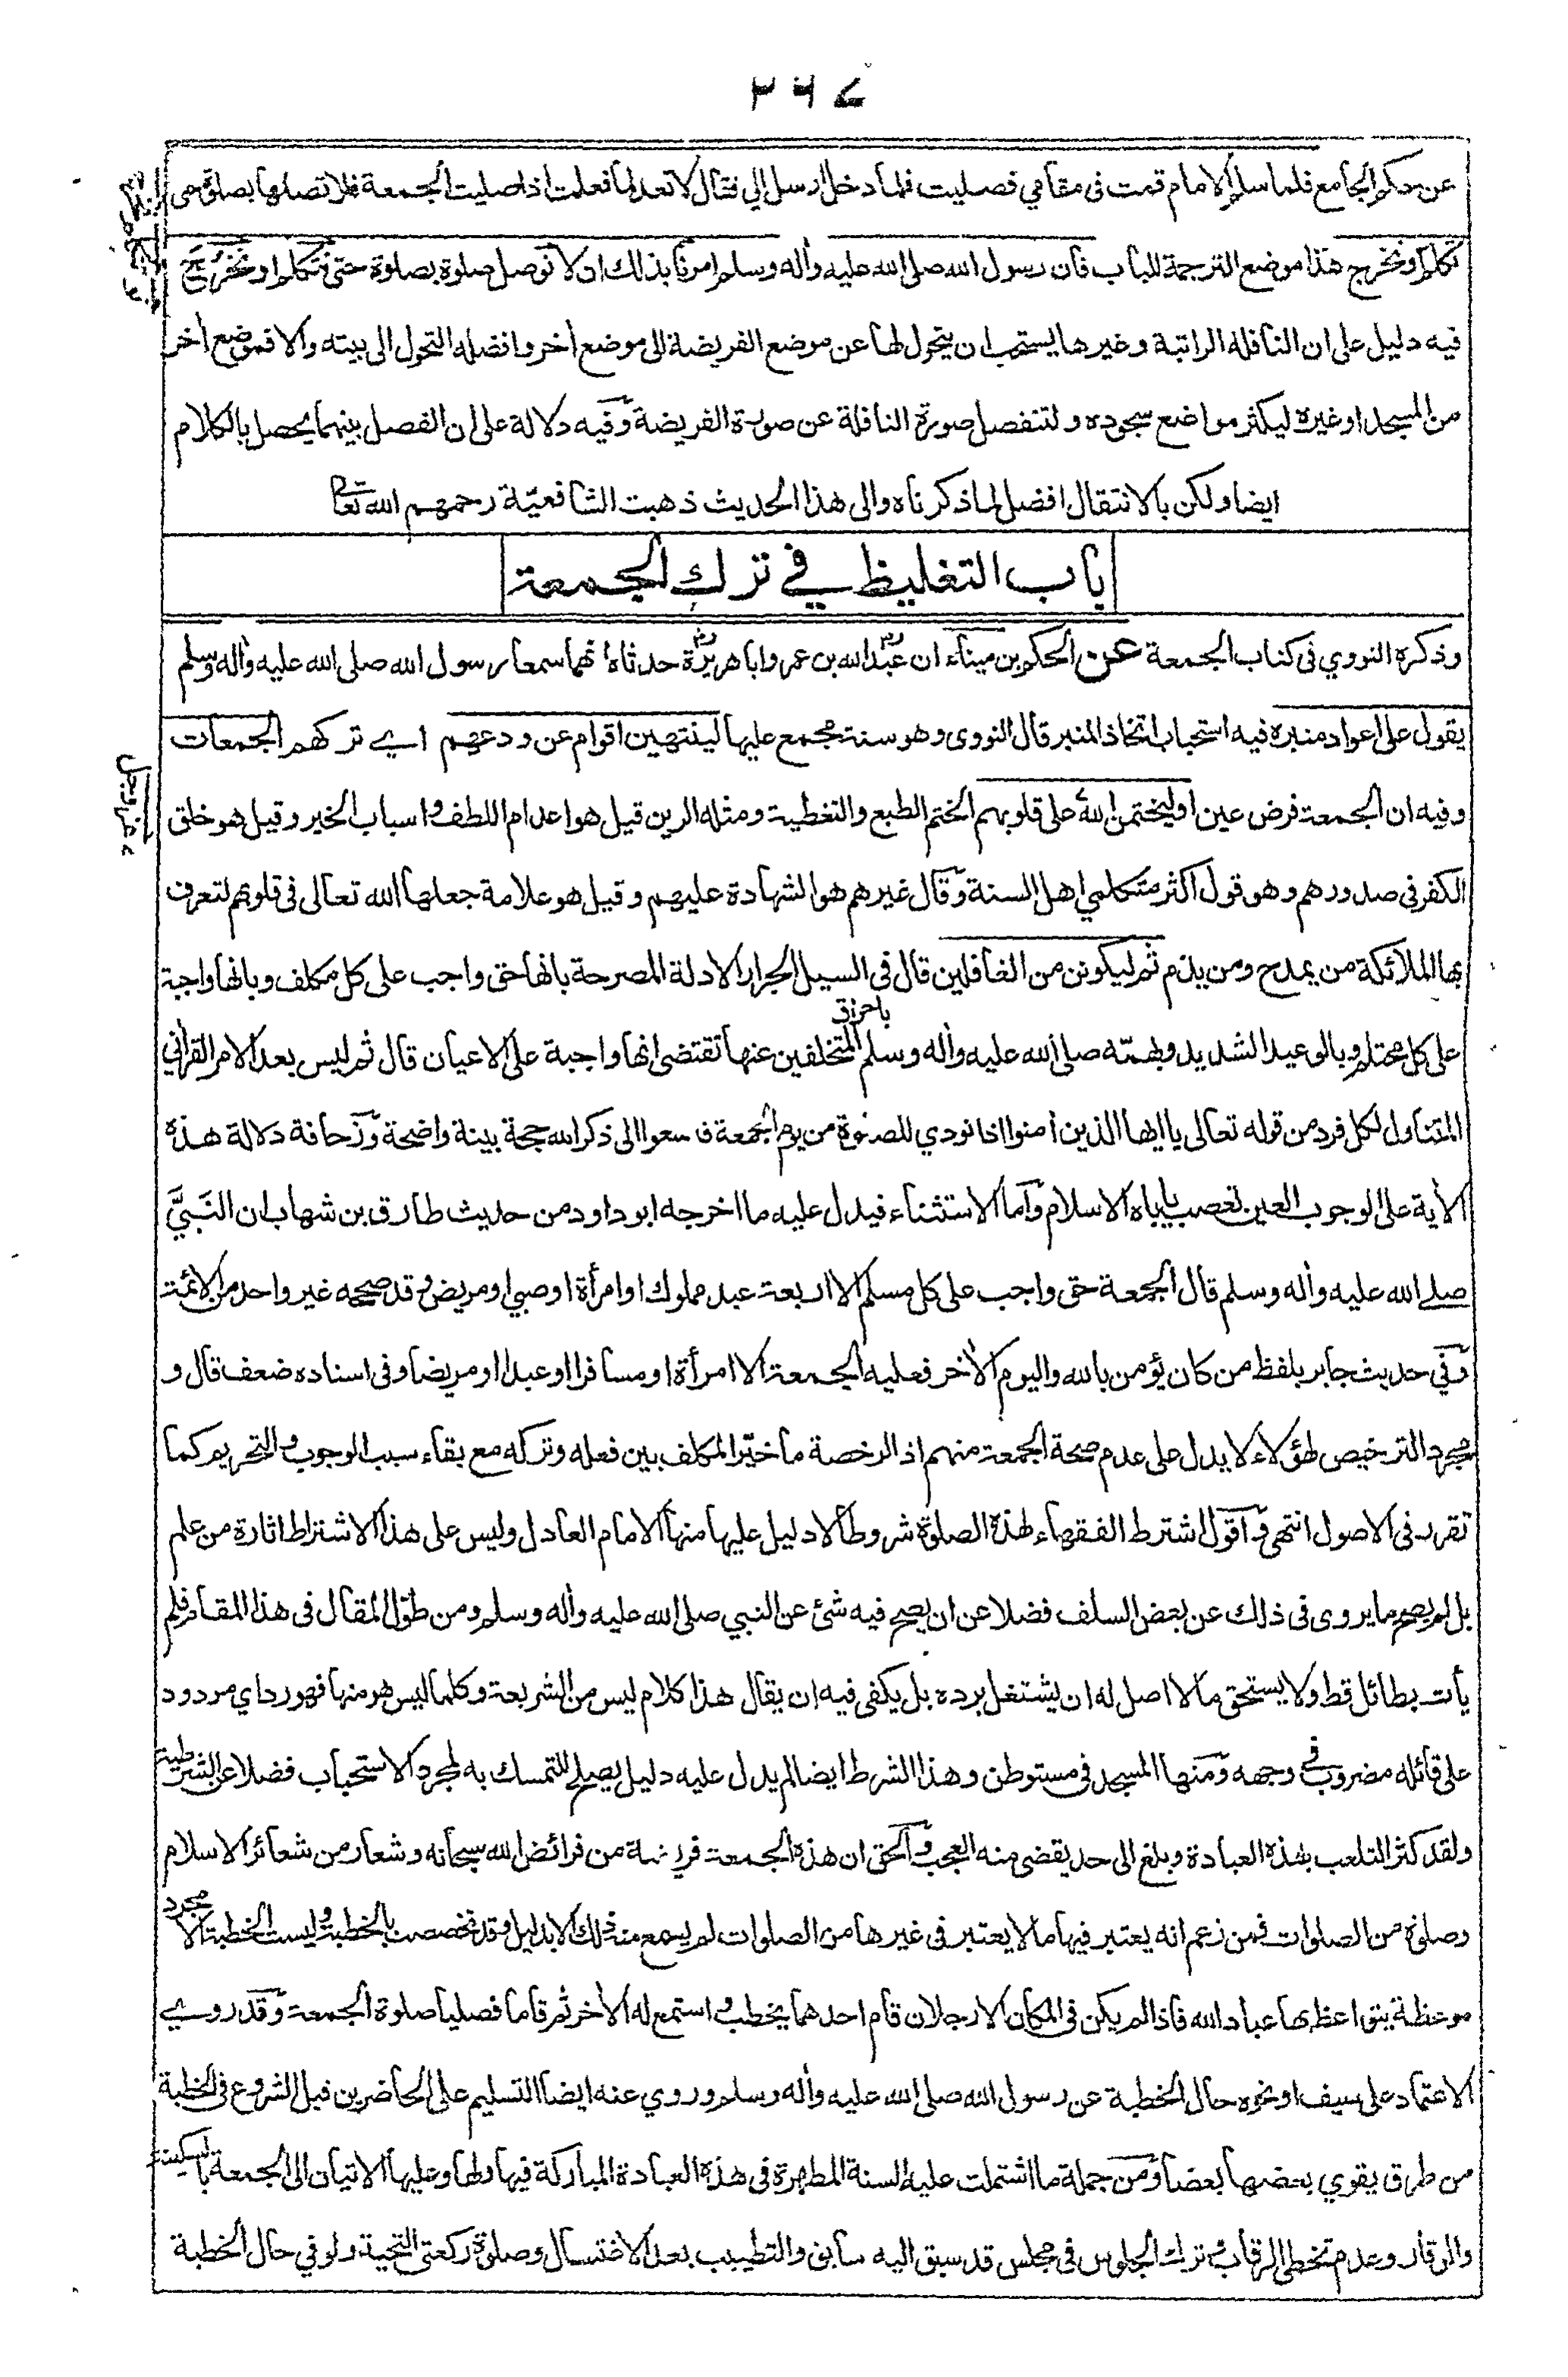 ٢٦٧
عن حكم الجامع فلما سلم الامام قمت فى مقامي فصليت فلما دخل ارسل الي فقال لا تعد لما فعلت اذا صليت الجمعة فلا تصلها بصلوة حتى
تكلم او تخرج هذا موضع الترجمة للباب فان رسول الله صلى الله عليه وأله وسلم امرنا بذلك ان لا نوصل صلوة بصلوة حتى نتكلم او نخرج
فيه دليل على ان النافلة الراتبة وغيرها يستحب ان يتحول لها عن موضع الفريضة الى موضع أخر وافضله التحول الى بيته والا فموضع أخر
من المسجد او غيره ليكثر مواضع سجوده ولتنفصل صورة النافلة عن صورة الفريضة وفيه دلالة على ان الفصل بينهما يحصل بالكلام
ايضا ولكن بالانتقال افضل لما ذكرناه والى هذا الحديث ذهبت الشافعيّة رحمهم الله تعالى
باب التغليظ في ترك الجمعة
وذكره النووي فى كتاب الجمعة عن الحكم بن ميناء ان عبد الله بن عمر وابا هريرة حدثاه انهما سمعا رسول الله صلى الله عليه وأله وسلم
يقول على اعواد منبره فيه استحباب اتخاذ المنبر قال النووى وهو سنة مجمع عليها لينتهين اقوام عن ودعهم اي تركهم الجمعات
وفيه ان الجمعة فرض عين او ليختمن الله على قلوبهم الختم الطبع والتغطية ومثله الرين قيل هو اعدام اللطف واسباب الخير وقيل هو خلق
عز وجل
الكفر فى صدورهم وهو قول اكثر متكلمي اهل السنة وقال غيرهم هو الشهادة عليهم وقيل هو علامة جعلها الله تعالى فى قلوبهم لتعرف
بها الملائكة من يمدح ومن يذم ثم ليكونن من الغافلين قال فى السيل الجرار الادلة المصرحة بانها حق واجب على كل مكلف وبانها واجبة
على كل محتلم وبالوعيد الشديد وبهمّه صلى الله عليه وأله وسلم باحراق المتخلفين عنها تقتضى انها واجبة على الاعيان قال ثم ليس بعد الامر القرأني
المتناول لكل فرد من قوله تعالى يا ايها الذين أمنوا اذا نودي للصلوة من يوم الجمعة فاسعوا الى ذكر الله حجة بينة واضحة وزحافة دلالة هذه
الأية على الوجوب العين تعصب ياباه الاسلام وأما الاستثناء فيدل عليه ما اخرجه ابو داود من حديث طارق بن شهاب ان النَبيَّ
صلے الله عليه وأله وسلم قال الجمعة حق واجب على كل مسلم الا اربعة عبد مملوك او امرأة او صبي او مريض وقد صححه غير واحد من الائمة
وفي حديث جابر بلفظ من كان يؤمن بالله واليوم الأخر فعليه الجمعة الا امرأة او مسافرا او عبدا او مريضا وفى اسناده ضعف قال و
مجرد الترخيص لهؤلاء لا يدل على عدم صحة الجمعة منهم اذ الرخصة ما خيّر المكلف بين فعله وتركه مع بقاء سبب الوجوب والتحريم كما
تقرر فى الاصول انتهى وأقول اشترط الفقهاء لهذه الصلوة شروطا لا دليل عليها منها الامام العادل وليس على هذا الاشتراط اثارة من علم
بل لم يصح ما يروى فى ذلك عن بعض السلف فضلا عن ان يصح فيه شئ عن النبي صلى الله عليه وأله وسلم ومن طوّل المقال فى هذا المقام فلم
يأت بطائل قط ولا يستحق ما لا اصل له ان يشتغل برده بل يكفى فيه ان يقال هذا كلام ليس من الشريعة وكلما ليس هو منها فهو رد اي مردود
على قائله مضروب في وجهه ومنها المسجد فى مستوطن وهذا الشرط ايضا لم يدل عليه دليل يصلح للتمسك به لمجرد الاستحباب فضلا عن الشرطية
ولقد كثر التلعب بهذه العبادة وبلغ الى حد يقضى منه العجب والحق ان هذه الجمعة فريضة من فرائض الله سبحانه وشعار من شعائر الاسلام
وصلوة من الصلوات فمن زعم انه يعتبر فيها ما لا يعتبر فى غيرها من الصلوات لم يسمع منه ذلك الا بدليل وقد تخصصت بالخطبة وليست الخطبة الا مجرد
موعظة يتواعظ بها عباد الله فاذا لم يكن فى المكان الا رجلان قام احدهما يخطب واستمع له الأخر ثم قاما فصليا صلوة الجمعة وقد روي
الاعتماد على سيف او نحوه حال الخطبة عن رسول الله صلى الله عليه وأله وسلم وروي عنه ايضا التسليم على الحاضرين قبل الشروع فى الخطبة
من طرق يقوي بعضها بعضا ومن جملة ما اشتملت عليه السنة المطهرة فى هذه العبادة المباركة فيها ولها وعليها الاتيان الى الجمعة بالسكينة
والوقار وعدم تخطى الرقاب وترك الجلوس فى مجلس قد سبق اليه سابق والتطيب بعد الاغتسال وصلوة ركعتى التحية ولو في حال الخطبة